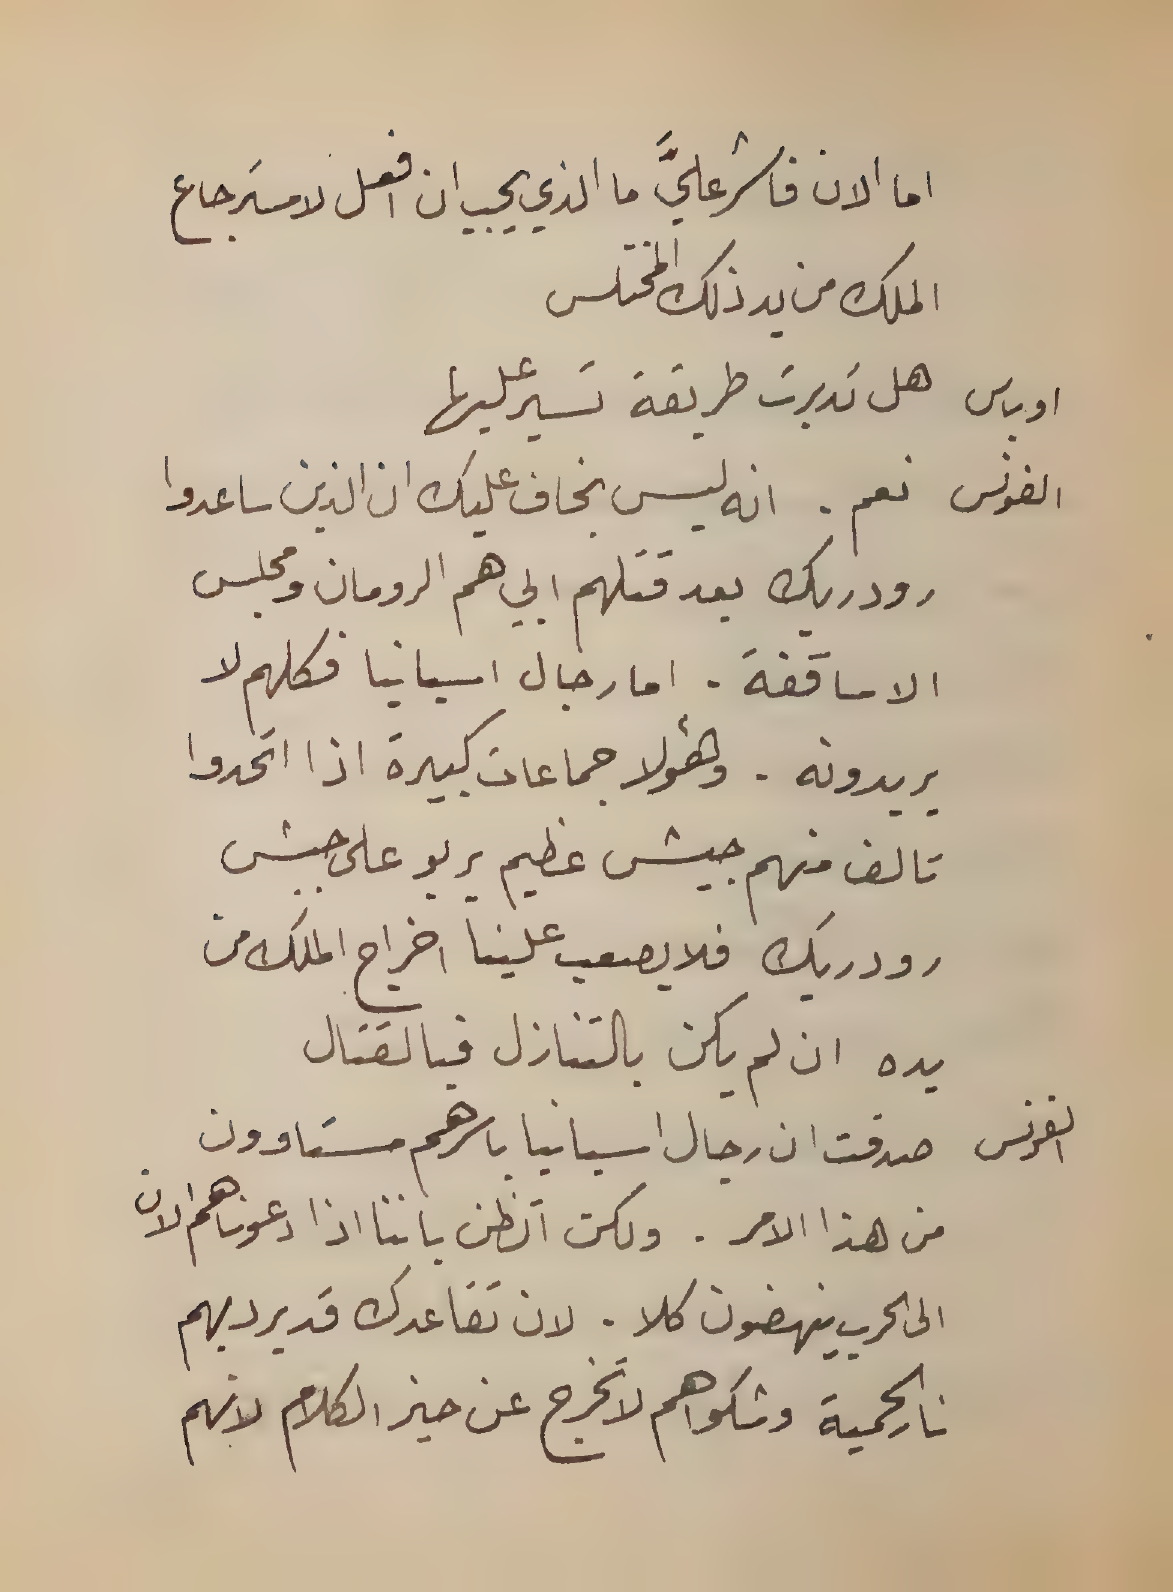 اما الان فاشر عليَّ ما الذي يجب ان افعل لاسترجاع
الملك من يد ذلك المختلس
اوباس هل تدبرت طريقة تسير عليها
الفونس نعم . انه ليس بخاف عليك ان الذين ساعدوا
رودريك بعد قتلهم ابي هم الرومان ومجلس
الاساقفة . اما رجال اسبانيا فكلهم لا
يريدونه . وهؤلاء جماعات كبيرة اذا اتحدوا
تالف منهم جيش عظيم يربو على جيش
رودريك فلا يصعب علينا اخراج الملك من
يده ان لم يكن بالتنازل فبالقتال
الفونس صدقت ان رجال اسبانيا باسرهم مستاوون
من هذا الامر . ولكن اتظن باننا اذا دعوناهم الان
الى الحرب ينهضون كلا . لان تقاعدك قد يرد بهم
نار الحمية وشكواهم لا تخرج عن حيز الكلام لانهم